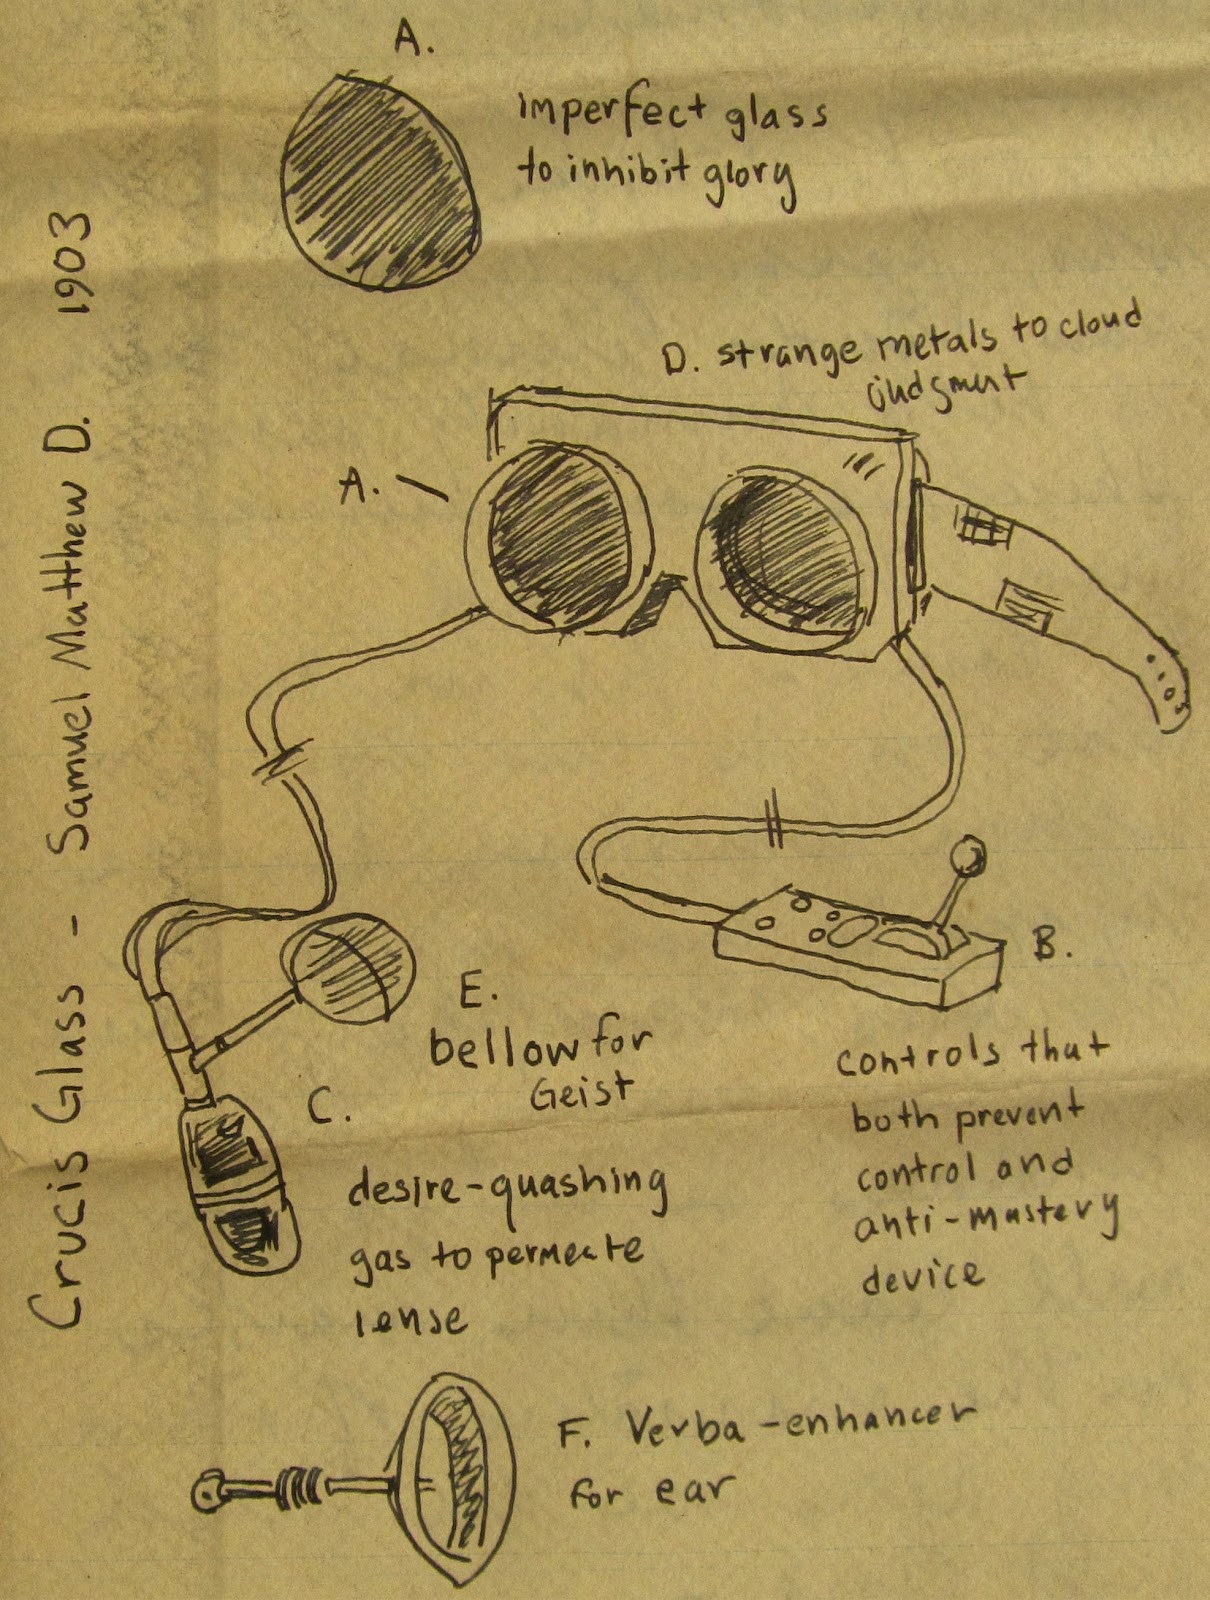 A.
imperfect glass
to inhibit glory
Crucis Glass - Samuel Matthew D. 1903
D. strange metals to cloud
judgment
A.
B.
controls that
both prevent
control and
anti-mastery
device
E.
bellow for
Geist
C.
desire-quashing
gas to permeate
lense
F. Verba-enhancer
for ear